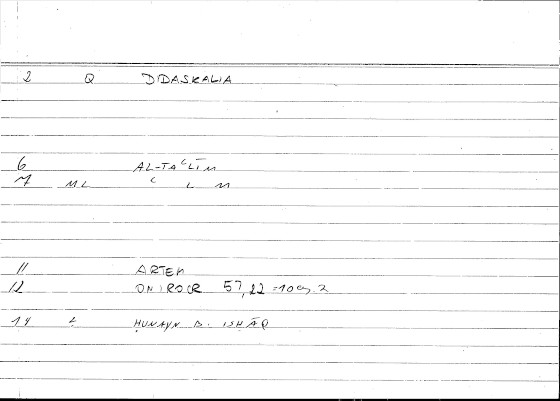 2 Q DIDASKALIA
6 AL-TAʿLĪM
7 ML ʿ L M
11 ARTEM
12 ONIROCR 57,22
14 ḤUNAYN B. ISḤĀQ